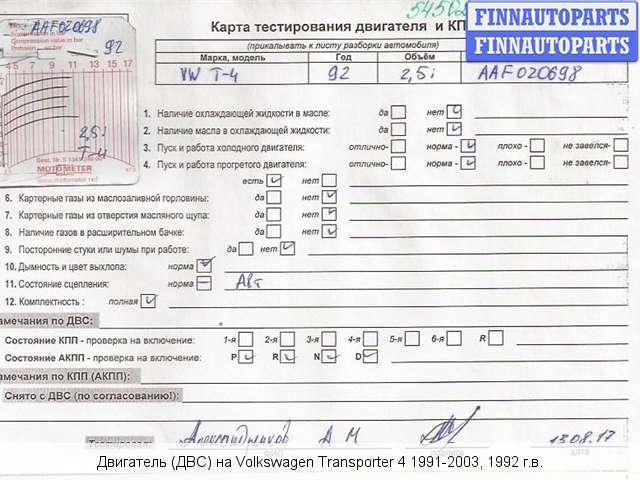 545
FINNAUTOPARTS
FINNAUTOPARTS
AAF020698
92
Compression value in bar
4 5 7 9 11 13 15 17
2,5i
T-4
MOTOMETER
Карта тестирования двигателя и КП
(прикалывать к листу разборки автомобиля)
Марка, модель Год Объём
VW T-4 92 2,5i AAF020698
1. Наличие охлаждающей жидкости в масле: да нет
2. Наличие масла в охлаждающей жидкости: да нет
3. Пуск и работа холодного двигателя: отлично- норма - плохо - не завелся-
4. Пуск и работа прогретого двигателя: отлично- норма - плохо - не завелся-
есть нет
6. Картерные газы из маслозаливной горловины: да нет
7. Картерные газы из отверстия масляного щупа: да нет
8. Наличие газов в расширительном бачке: да нет
9. Посторонние стуки или шумы при работе: да нет
10. Дымность и цвет выхлопа: норма
11. Состояние сцепления: норма Авт
12. Комплектность : полная
амечания по ДВС:
Состояние КПП - проверка на включение: 1-я 2-я 3-я 4-я 5-я 6-я R
Состояние АКПП - проверка на включение: P R N D
амечания по КПП (АКПП):
Снято с ДВС (по согласованию!):
Тестировал: А М 13.08.17
ФИО подпись дата
Двигатель (ДВС) на Volkswagen Transporter 4 1991-2003, 1992 г.в.